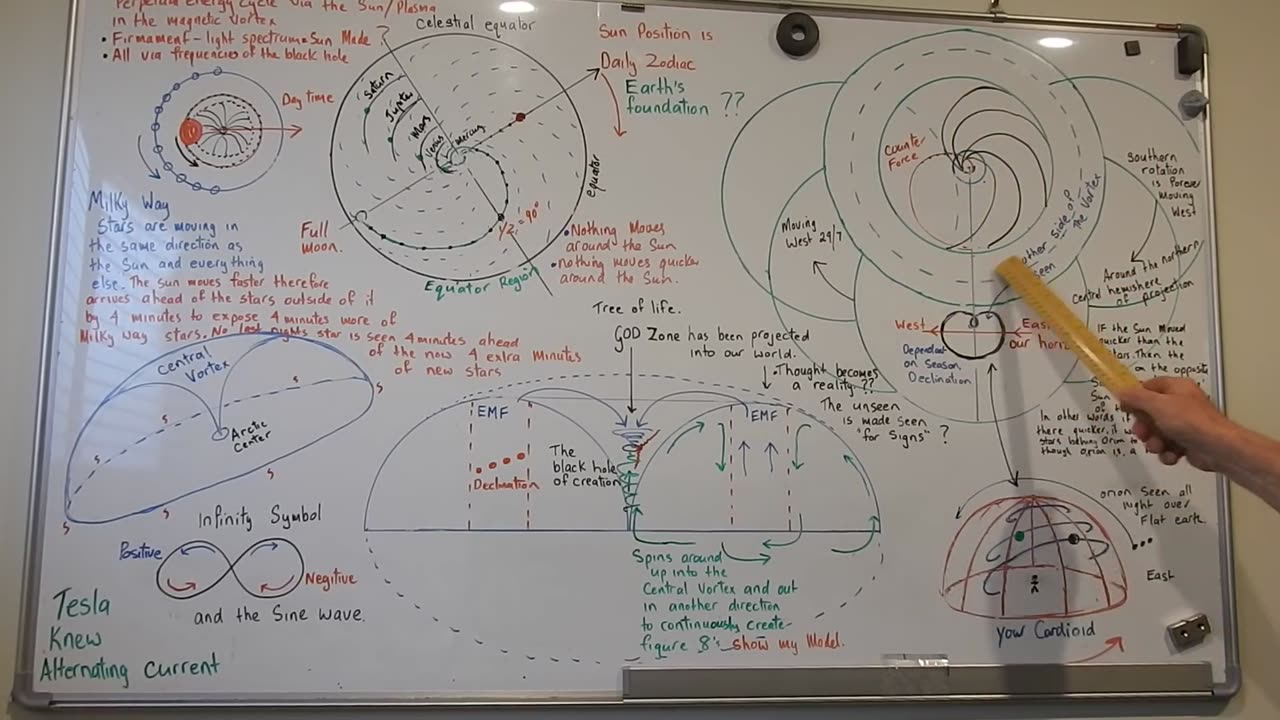 Perpetual energy cycle via the Sun/Plasma
in the magnetic vortex
• Firmament - light spectrum = Sun Made ?
• All via frequencies of the black hole
Day time
Milky Way
Stars are moving in
the same direction as
the Sun and everything
else. The sun moves faster therefore
arrives ahead of the stars outside of it
by 4 minutes to expose 4 minutes more of
Milky way stars. No last nights star is seen 4 minutes ahead
of the now 4 extra minutes
of new stars
Celestial equator
Saturn
Jupiter
Mars
Venus
Mercury
Full
moon.
1/2 = 90°
equator
Equator Region
Sun Position is
Daily Zodiac
Earth's
foundation ??
• Nothing Moves
around the Sun
• nothing moves quicker
around the Sun.
Counter
Force
other side of
the Vortex
seen
Moving
West 24/7
Southern
rotation
is Forever
Moving
West
Around the northern
central hemishere
of projection
West
East
our horiz
Dependant
on Season
Declination
IF the Sun Moved
quicker than the
stars. Then the
on the opposite
Sun
of the
In other words if
there quicker, it w
stars behind Orion to
though orion is, a
Tree of life.
GOD Zone has been projected
into our world.
Thought becomes
a reality ??
The unseen
is made seen
"for Signs" ?
Central
Vortex
Arctic
Center
s
s
s
s
s
s
EMF
EMF
Declination
The
black hole
of creation
Spins around
up into the
Central Vortex and out
in another direction
to continuously create
figure 8's show my Model.
Infinity Symbol
Positive
Negitive
and the Sine wave.
Tesla
Knew
Alternating current
orion seen all
night over
Flat earth.
East
your Cardioid